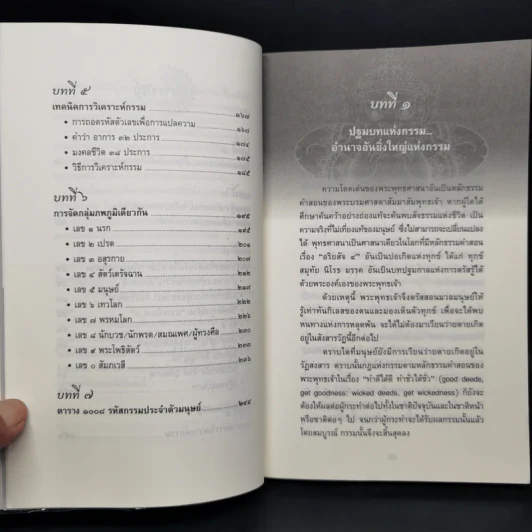 บทที่ ๕
เทคนิคการวิเคราะห์กรรม ๑๖๗
• การถอดรหัสตัวเลขเพื่อการแปลความ ๑๖๘
• คำว่า อาการ ๓๒ ประการ ๑๗๔
• มงคลชีวิต ๓๘ ประการ ๑๗๕
• วิธีการวิเคราะห์กรรม ๑๘๕
บทที่ ๖
การจัดกลุ่มภพภูมิเดียวกัน ๑๙๕
• เลข ๑ นรก ๑๙๕
• เลข ๒ เปรต ๒๐๑
• เลข ๓ อสุรกาย ๒๐๖
• เลข ๔ สัตว์เดรัจฉาน ๒๑๑
• เลข ๕ มนุษย์ ๒๑๖
• เลข ๖ เทวโลก ๒๒๒
• เลข ๗ พรหมโลก ๒๒๗
• เลข ๘ นักบวช/นักพรต/สมณเพศ/ผู้ทรงศีล ๒๓๐
• เลข ๙ พระโพธิสัตว์ ๒๓๓
• เลข ๐ สัมภเวสี ๒๓๖
บทที่ ๗
ตาราง ๑๐๐๘ รหัสกรรมประจำตัวมนุษย์ ๒๔๔
บทที่ ๑
ปฐมบทแห่งกรรม...
อำนาจอันยิ่งใหญ่แห่งกรรม
ความโดดเด่นของพระพุทธศาสนาอันเป็นหลักธรรม
คำสอนของพระบรมศาสดาสัมมาสัมพุทธเจ้า หากผู้ใดได้
ศึกษาค้นคว้าอย่างถ่องแท้จะค้นพบสัจธรรมแห่งชีวิต เป็น
ความจริงที่ไม่เที่ยงแท้ของมนุษย์ ซึ่งไม่สามารถจะเปลี่ยนแปลง
ได้ พุทธศาสนาเป็นศาสนาเดียวในโลกที่มีหลักธรรมคำสอน
เรื่อง "อริยสัจ ๔" อันเป็นบ่อเกิดแห่งทุกข์ ได้แก่ ทุกข์
สมุทัย นิโรธ มรรค อันเป็นบทปฐมกาลแห่งการตรัสรู้ได้
ด้วยพระองค์เองของพระพุทธเจ้า
ด้วยเหตุนี้ พระพุทธเจ้าจึงตรัสสอนมวลมนุษย์ให้
รู้เท่าทันกิเลสของตนและมองเห็นตัวทุกข์ เพื่อจะได้พบ
หนทางแห่งการหลุดพ้น จะได้ไม่ต้องมาเวียนว่ายตายเกิด
อยู่ในสังสารวัฏนี้อีกต่อไป
ตราบใดที่มนุษย์ยังมีการเวียนว่ายตายเกิดอยู่ใน
วัฏสงสาร ตราบนั้นกฎแห่งกรรมตามหลักธรรมคำสอนของ
พระพุทธเจ้าในเรื่อง "ทำดีได้ดี ทำชั่วได้ชั่ว" (good deeds,
get goodness: wicked deeds, get wickedness) ก็ยังจะ
ต้องให้ผลต่อผู้กระทำต่อไปทั้งในชาติปัจจุบันและในชาติหน้า
หรือชาติต่อๆ ไป จนกว่าผู้กระทำจะได้รับผลกรรมนั้นแล้ว
โดยสมบูรณ์ กรรมนั้นจึงจะสิ้นสุดลง